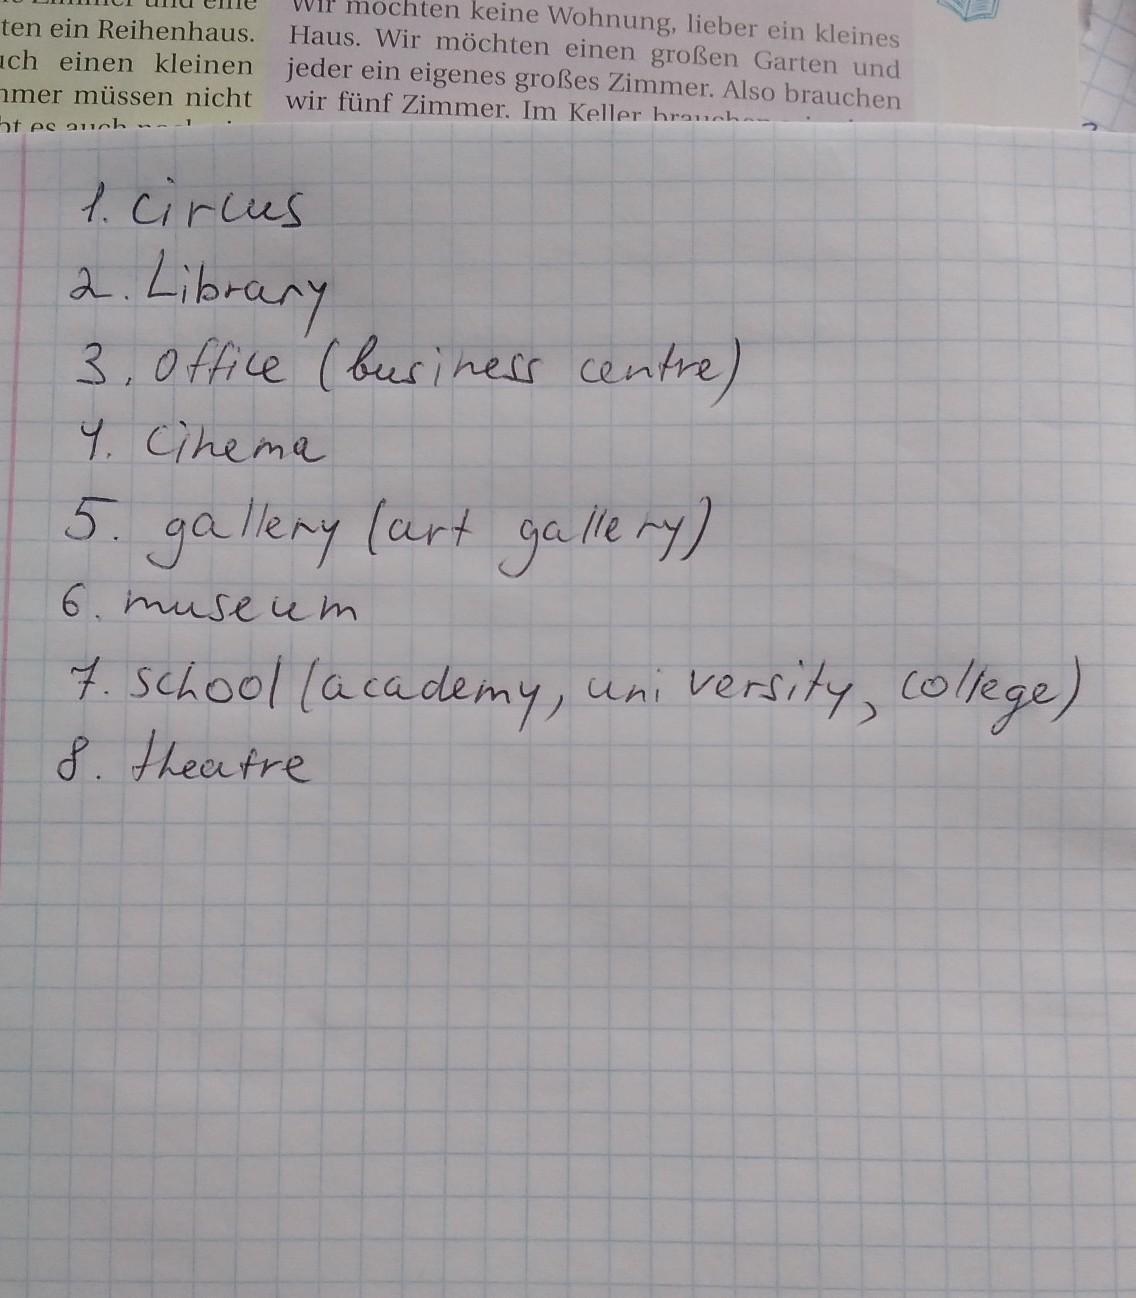 ten ein Reihenhaus.
einen kleinen
müssen nicht
es auch
Wir möchten keine Wohnung, lieber ein kleines
Haus. Wir möchten einen großen Garten und
jeder ein eigenes großes Zimmer. Also brauchen
wir fünf Zimmer. Im Keller
1. circus
2. Library
3. office (business centre)
4. cinema
5. gallery (art gallery)
6. museum
7. school (academy, university, college)
8. theatre